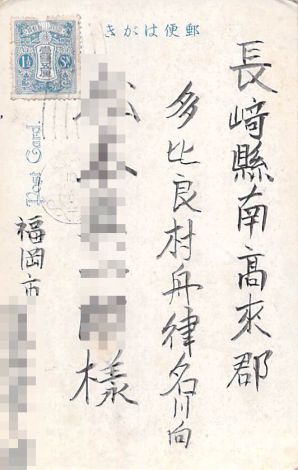 きがは便郵
長﨑縣南高來郡
多比良村舟津名川向
様
福岡市
Post Card.
1½ Sn.